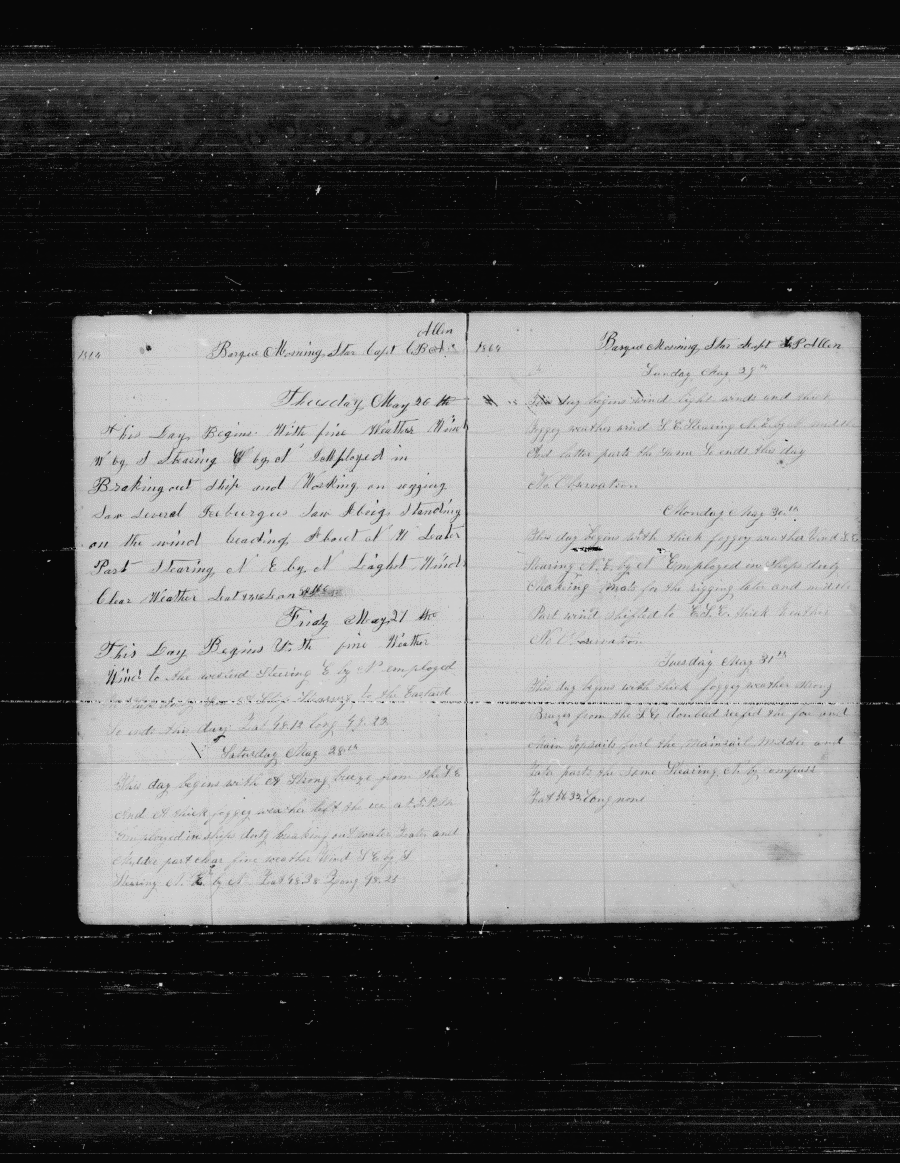 Allen
1864 Barque Morning Star Capt
Thursday May 26 th
This Day Begins With fine Weather Wind
W by S Stearing by N Imployed in
Braking out Ship and Working on
Saw several Iceburgues Saw A brig Standing
on the wind heading About N W Later
Part Stearing N E by N Light Wind
Clear Weather Lat Lon
Friday May 27 th
This Day Begins With fine Weather
Wind to the westard Steering E by N employed
in Ship duty Saw A Ship Stearing to the Eastard
So ends this day Lat 48.12 long 98.23
Saturday May 28th
This day begins with A Strong breeze from the S E
And A thick foggey weather left the ice at
Employed in ships duty breaking out water Later and
Middle part clear fine weather Wind S E by S
Stearing N. E. by N Lat Long 98.21
1864 Barque Morning Star Capt Allen
Sunday May 29th
This day begins wind light winds and thick
foggey weather wind S. E. Stearing N. E. by N middle
And latter parts the same So ends this day
No Observation
Monday May 30th
This day begins with thick foggey weather Wind S. E.
Stearing N. E. by N Employed in Ships duty
Making mats for the rigging later and middle
Part wind shifted to E.S.E. thick weather
No Observation
Tuesday May 31th
This day begins with thick foggey weather Strong
from the S E doubled reefed the for and
Main Topsails furl the mainsail Middle and
later parts the Same Stearing N. by compass
Lat 58.32 Long none